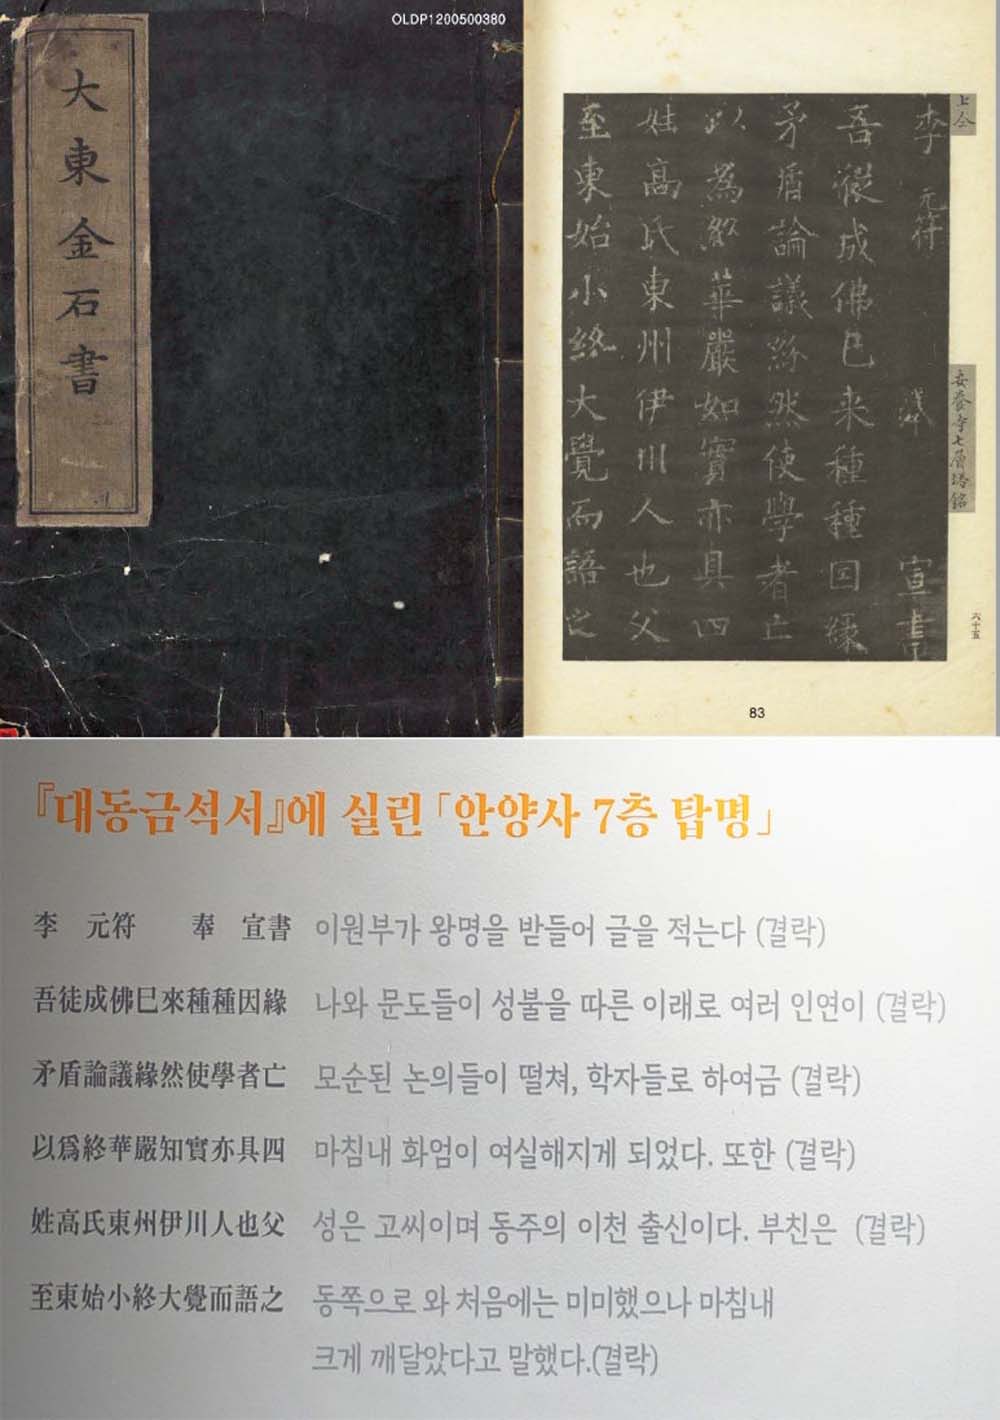 OLDP1200500380
大東金石書
上仝
安養寺七層塔銘
六十五
李 元符 宣書
吾從成佛已来種種因緣
矛盾論議紛然使學者亡
以為終華嚴如實亦具四
姓高氏東州伊川人也父
至東始小終大覺而語之
83
『대동금석서』에 실린 「안양사 7층 탑명」
李 元符 奉 宣書 이원부가 왕명을 받들어 글을 적는다 (결락)
吾徒成佛巳來種種因緣 나와 문도들이 성불을 따른 이래로 여러 인연이 (결락)
矛盾論議緣然使學者亡 모순된 논의들이 떨쳐, 학자들로 하여금 (결락)
以爲終華嚴知實亦具四 마침내 화엄이 여실해지게 되었다. 또한 (결락)
姓高氏東州伊川人也父 성은 고씨이며 동주의 이천 출신이다. 부친은 (결락)
至東始小終大覺而語之 동쪽으로 와 처음에는 미미했으나 마침내
크게 깨달았다고 말했다.(결락)